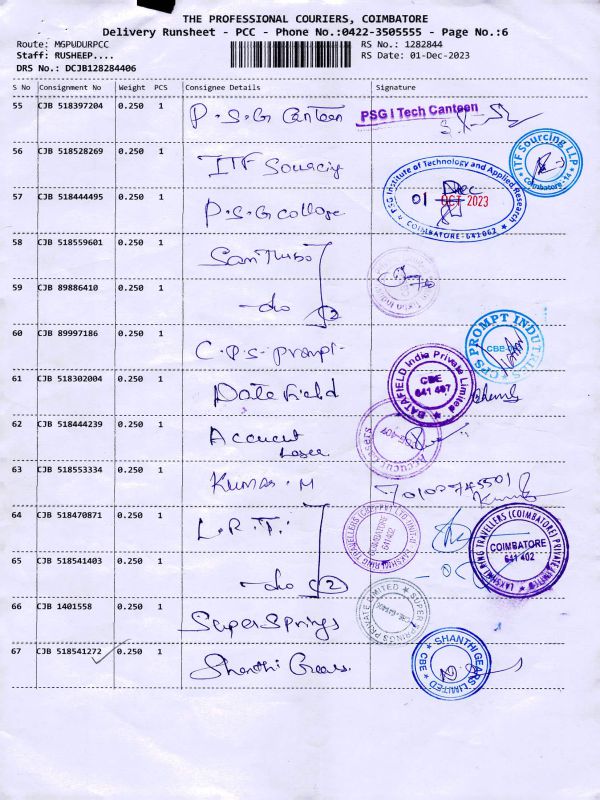 THE PROFESSIONAL COURIERS, COIMBATORE
Delivery Runsheet - PCC - Phone No.:0422-3505555 - Page No.:6
Route: MGPUDURPCC RS No.: 1282844
Staff: RUSHEEP.... RS Date: 01-Dec-2023
DRS No.: DCJB128284406
S No Consignment No Weight PCS Consignee Details Signature
55 CJB 518397204 0.250 1 P.S.G Canteen PSG I Tech Canteen
56 CJB 518528269 0.250 1 ITF Sourcing ITF Sourcing LLP Coimbatore-14
57 CJB 518444495 0.250 1 P.S.G College PSG Institute of Technology and Applied Research 01 Dec OCT 2023 COIMBATORE-641062
58 CJB 518559601 0.250 1
59 CJB 89886410 0.250 1 -do 2
60 CJB 89997186 0.250 1 C.P.S. Prompt CPS PROMPT INDUTRIES
61 CJB 518302004 0.250 1 Datefield DATAFIELD India Private Limited CBE 641 407
62 CJB 518444239 0.250 1 Accucut Laser
63 CJB 518553334 0.250 1 Kumar. M
64 CJB 518470871 0.250 1 L.R.T. COIMBATORE 641402 LAKSHMI RING TRAVELLERS (COIMBATORE) PRIVATE LIMITED COIMBATORE 641 402
65 CJB 518541403 0.250 1 -do 2
66 CJB 1401558 0.250 1 Super Springs SUPER SPRINGS PRIVATE LIMITED
67 CJB 518541272 0.250 1 Shanthi Gears. SHANTHI GEARS LIMITED CBE